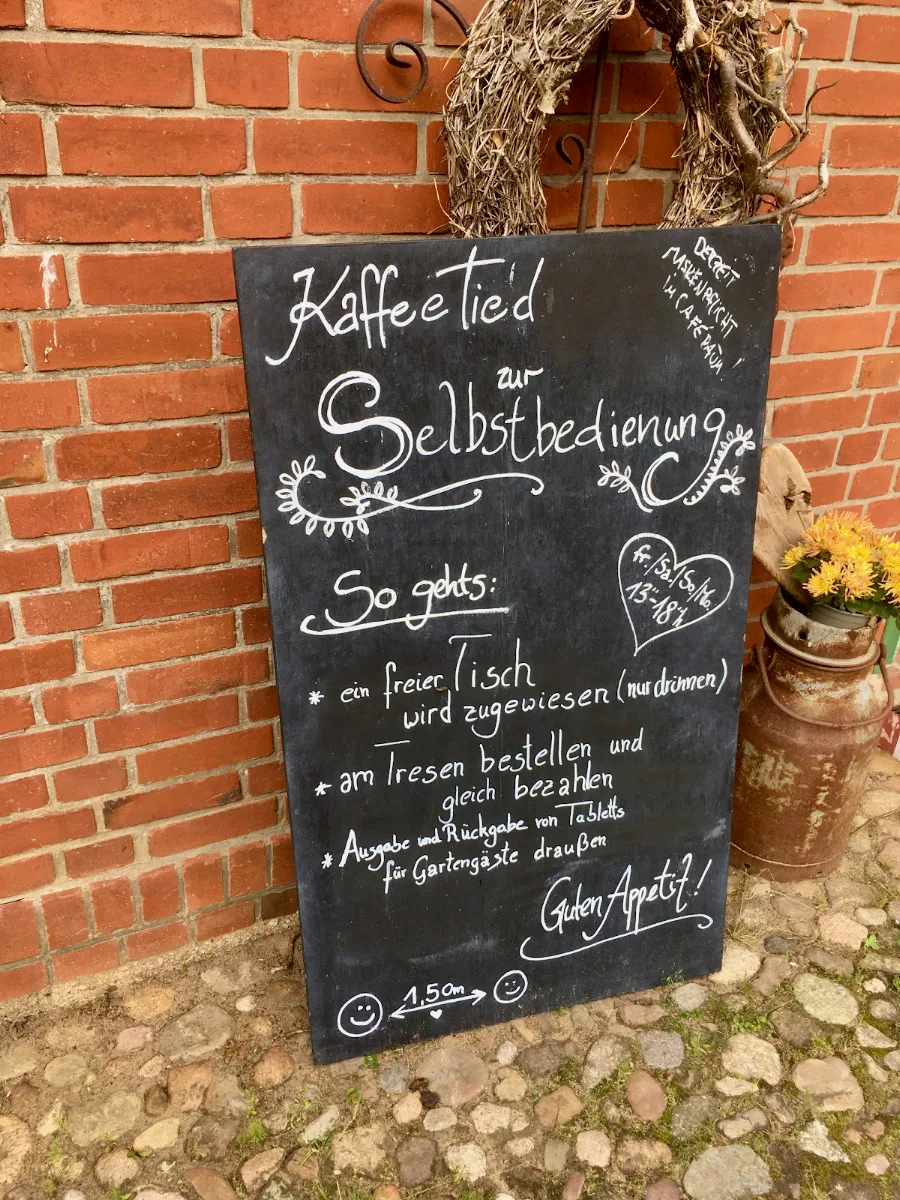 KaffeeTied
DERZEIT
MASKENPFLICHT
IM CAFÉRAUM !
zur
Selbstbedienung
So gehts:
Fr./Sa./So./Mo.
13⁰⁰-18⁰⁰h
* ein freier Tisch
wird zugewiesen (nur drinnen)
* am Tresen bestellen und
gleich bezahlen
* Ausgabe und Rückgabe von Tabletts
für Gartengäste draußen
Guten Appetit!
1,50m